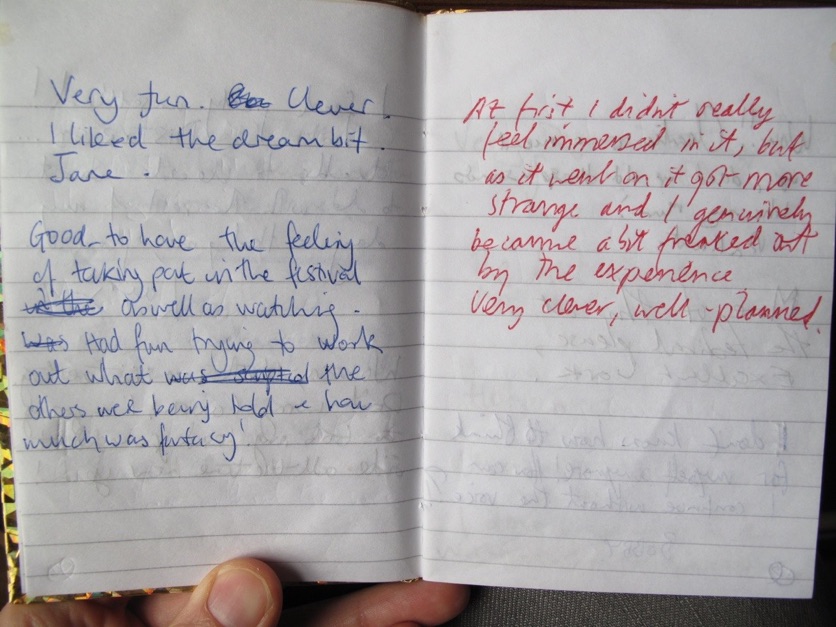 Very fun. Clever!
I likeed the dream bit.
Jane.
Good to have the feeling
of taking part in the festival
in the as well as watching.
Was Had fun trying to work
out what was scripted the
others were being told & how
much was fantasy!
At first I didn't really
feel immersed in it, but
as it went on it got more
strange and I genuinely
became a bit freaked out
by the experience
Very clever, well-planned.